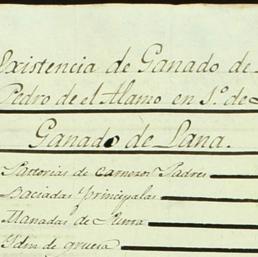 Existencia de Ganado de
Pedro de el Alamo en 1.º de
Ganado de Lana.
Pastorias de Carneros Padres
Baciadas principalas
Manadas de
Idm de gruesa